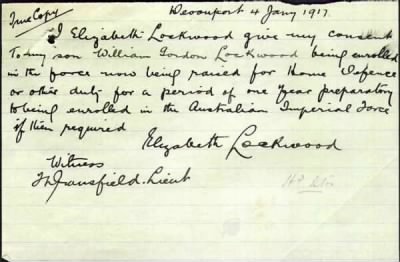 True Copy
Devonport 4 Jany 1917.
I Elizabeth Lockwood give my consent
to my son William Gordon Lockwood being enrolled
in the force now being raised for Home Defence
or other duty for a period of one year preparatory
to being enrolled in the Australian Imperial Force
if then required
Elizabeth Lockwood
Witness
Mansfield. Lieut